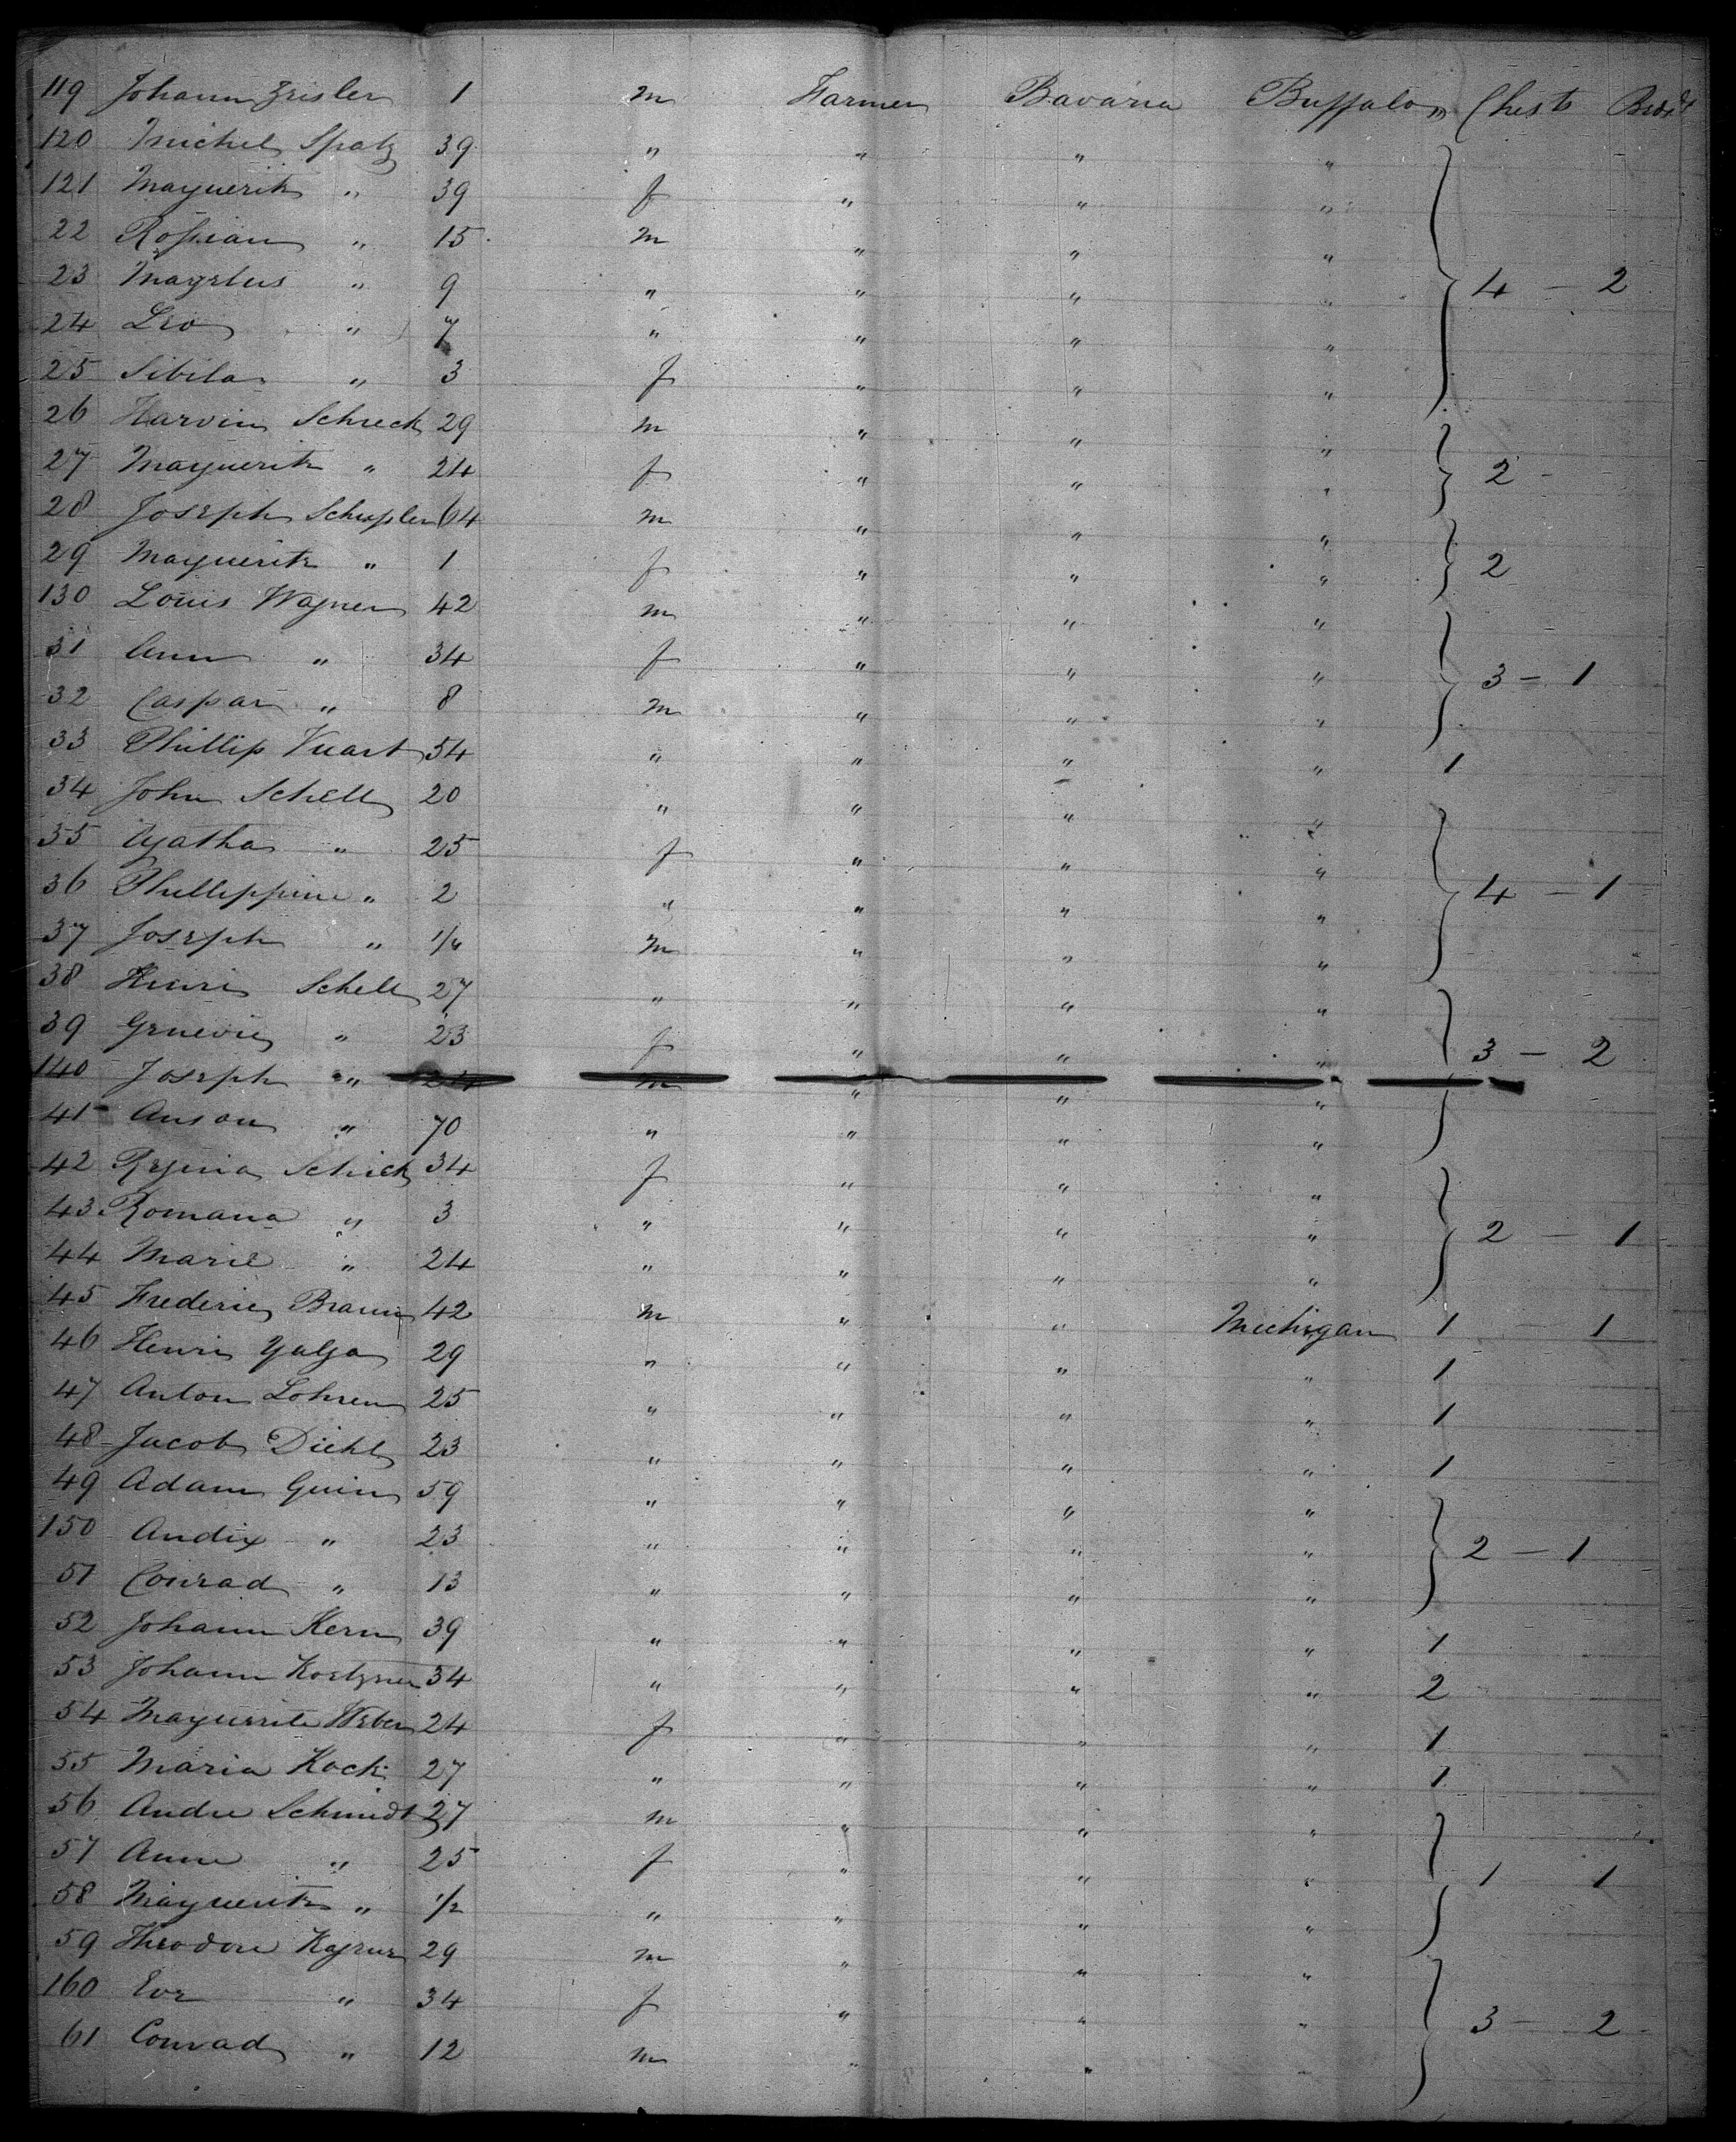 119 Johann Zeisler 1 m Farmer Bavaria Buffalo Chest Bed
120 Michel Spatz 39 " " " "
121 Marguerite " 39 f " " "
22 " 15 m " " "
23 " 9 " " " " 4 - 2
24 Leo " 7 " " " "
25 Sibila " 3 f " " "
26 Schreck 29 m " " "
27 Marguerite " 24 f " " " 2 -
28 Joseph 64 m " " "
29 Marguerite " 1 f " " " 2
130 Louis Wagner 42 m " " "
31 Ann " 34 f " " " 3 - 1
32 Caspar " 8 m " " "
33 Phillip Vuart 54 " " " " 1
34 John Schell 20 " " " "
35 Agatha " 25 f " " "
36 Phillippine " 2 " " " " 4 - 1
37 Joseph " m " " "
38 Henri Schell 27 " " " "
39 Genevie " 23 f " " " 3 - 2
140 Joseph " 24 m " " "
41 Anson " 70 " " " "
42 Regina Schick 34 f " " "
43 Romana " 3 " " " " 2 - 1
44 Marie " 24 " " " "
45 Frederic Braun 42 m " " Michigan 1 - 1
46 Henri 29 " " " " 1
47 Anton Lohren 25 " " " " 1
48 Jacob Diehl 23 " " " " 1
49 Adam Guin 59 " " " "
150 " 23 " " " " 2 - 1
51 Conrad " 13 " " " "
52 Johann Kern 39 " " " " 1
53 Johann 34 " " " " 2
54 Marguerite Weber 24 f " " " 1
55 Maria Kock 27 " " " " 1
56 Andre Schmidt 27 m " " "
57 Anne " 25 f " " " 1 1
58 Marguerite " 1/2 " " " "
59 Theodore 29 m " " "
160 Eve " 34 f " " " 3 - 2
61 Conrad " 12 m " " "